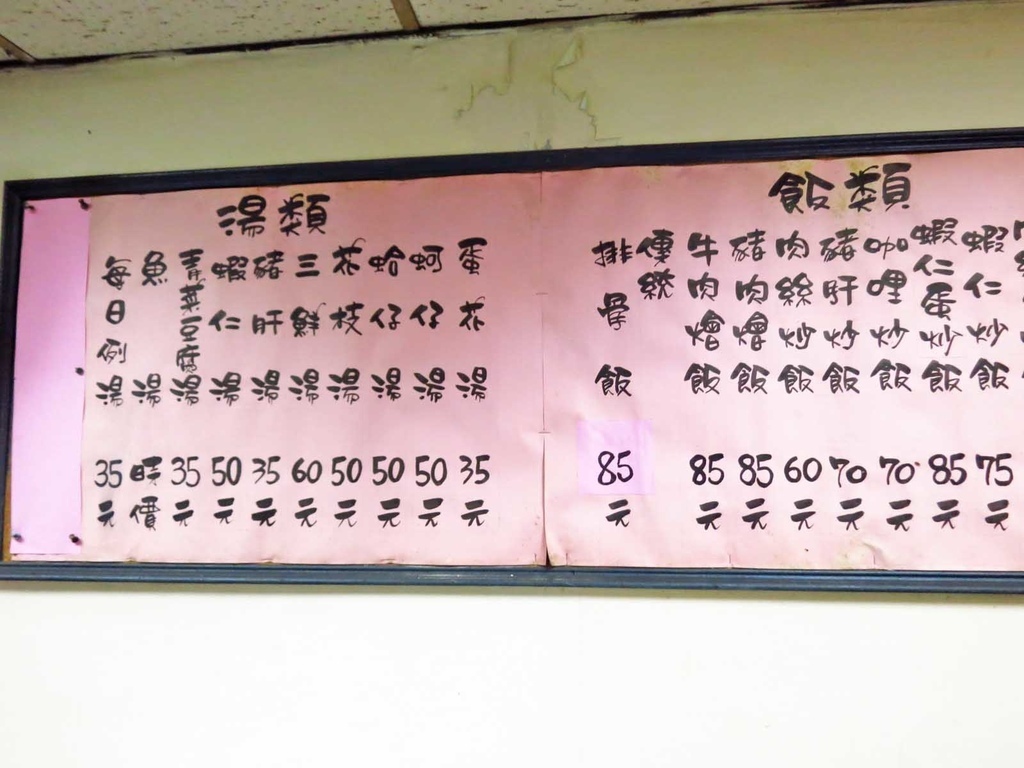 飯類
蝦仁炒飯 75元
蝦仁蛋炒飯 85元
咖哩炒飯 70元
豬肝炒飯 70元
肉絲炒飯 60元
豬肉燴飯 85元
牛肉燴飯 85元
傳統
排骨飯 85元
湯類
蛋花湯 35元
蚵仔湯 50元
蛤仔湯 50元
花枝湯 50元
三鮮湯 60元
豬肝湯 35元
蝦仁湯 50元
青菜豆腐湯 35元
魚湯 時價
每日例湯 35元